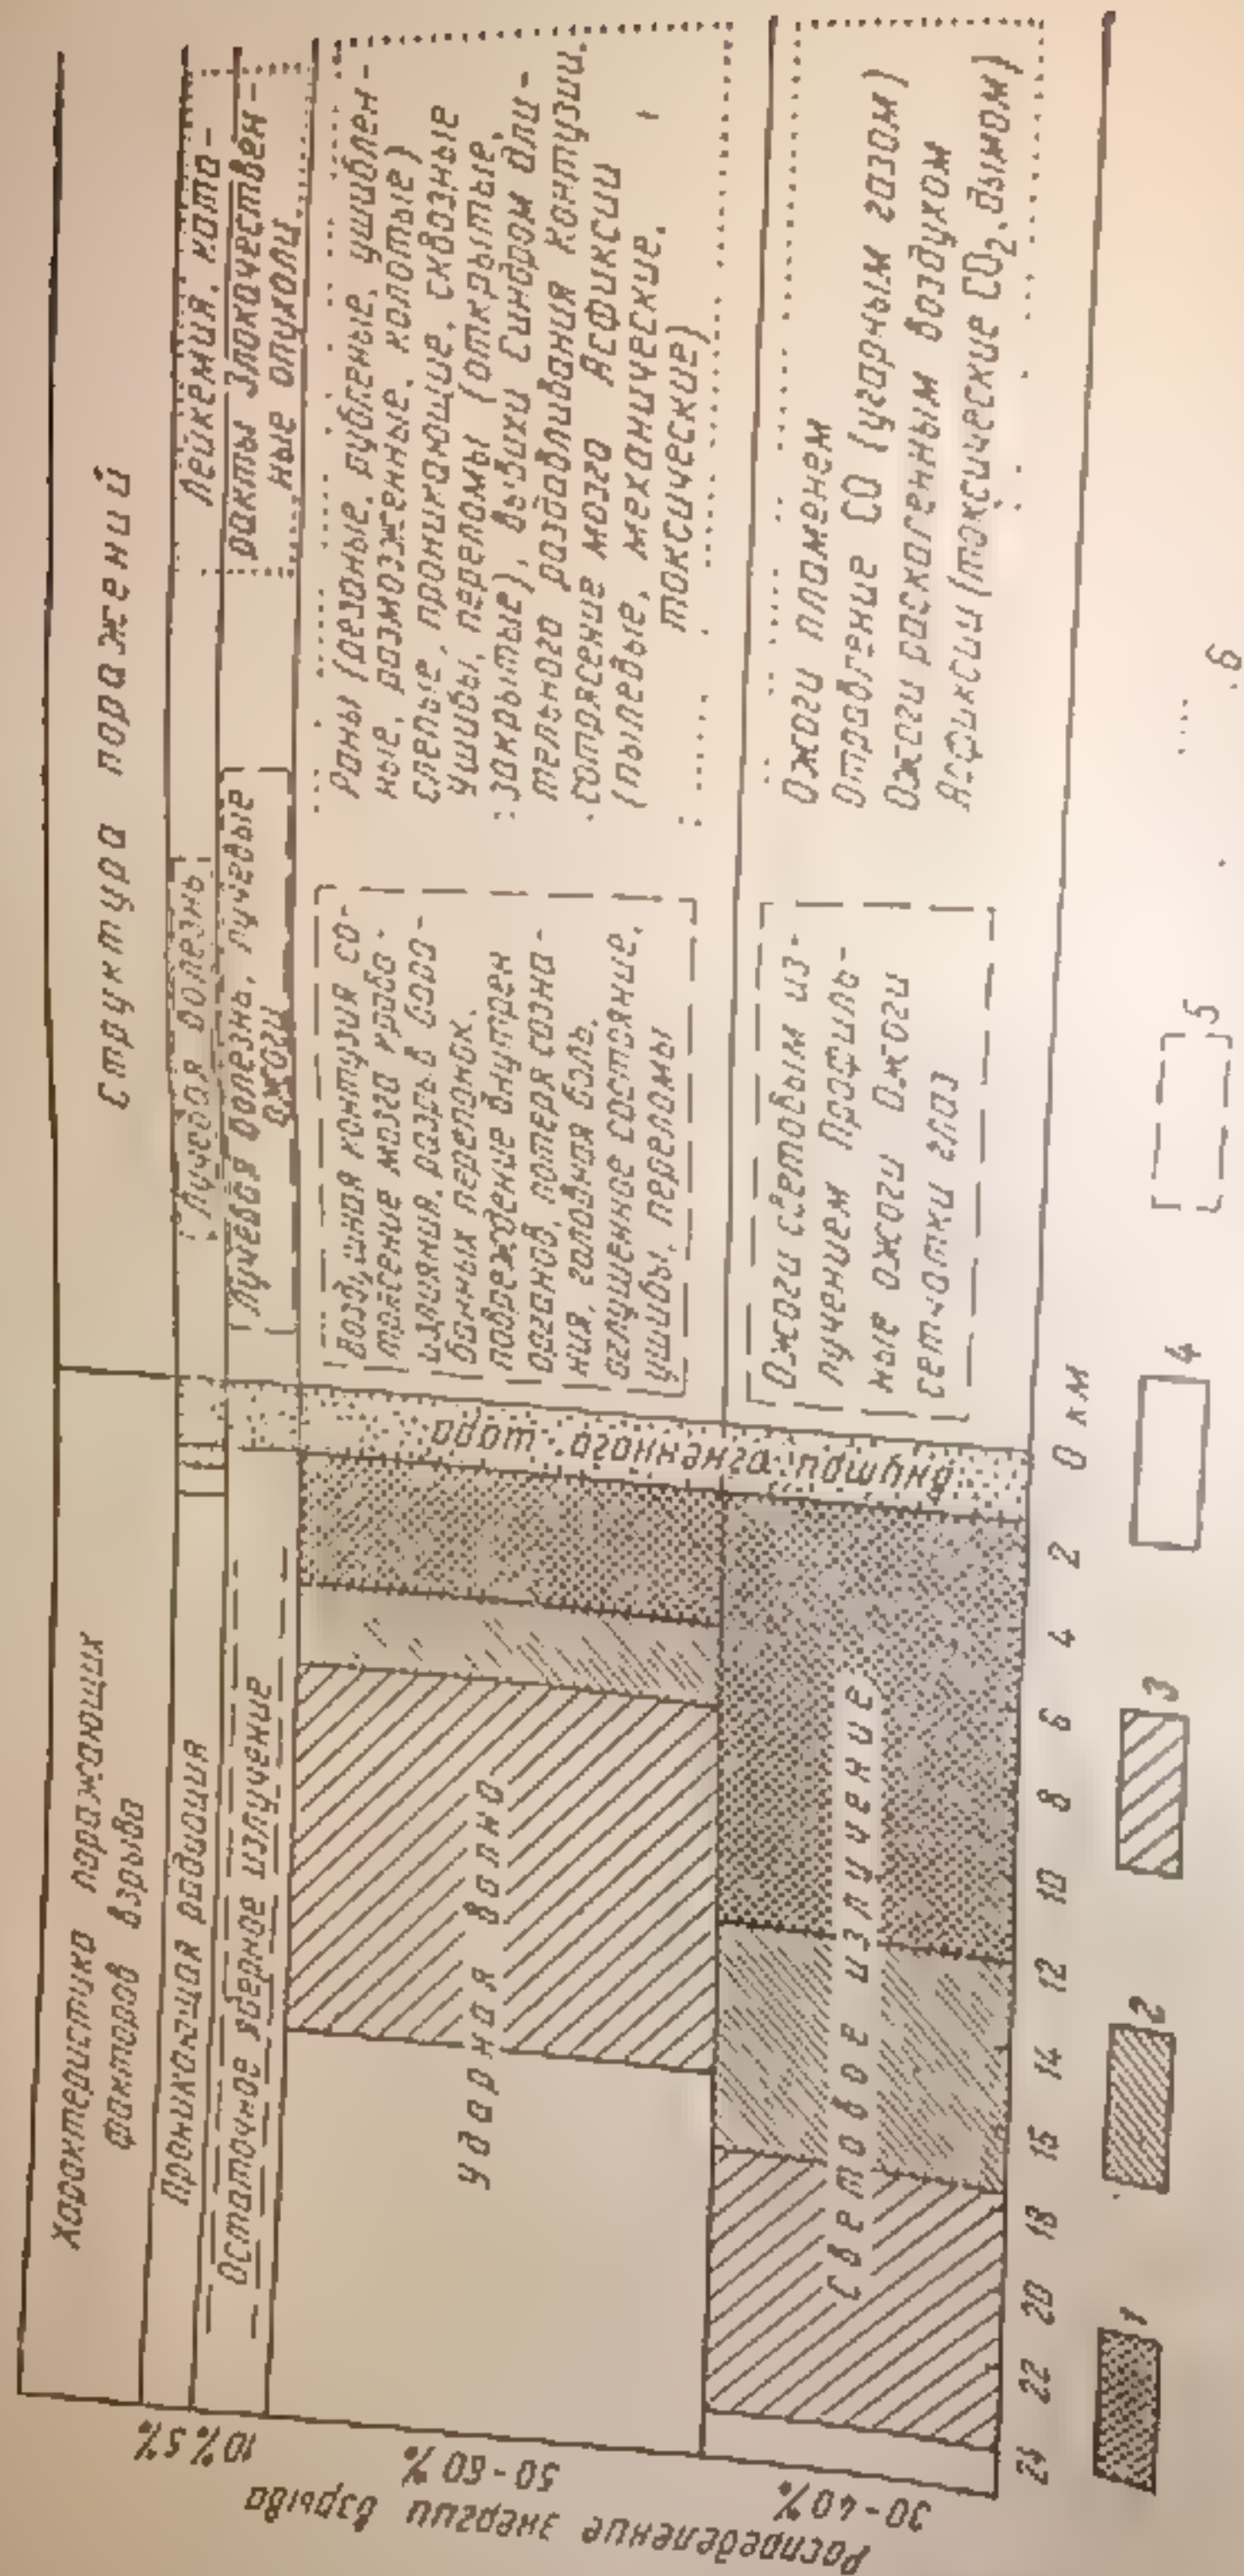 Характеристика поражающих
факторов взрыва
Структура поражений
Проникающая радиация
Лучевая болезнь
Лейкемия, ката-
ракты Злокачествен-
ные опухоли.
Остаточное ядерное излучение
Лучевая болезнь, лучевые
ожоги
Ударная волна
Внутри огненного шара
Воздушная контузия со-
трясение мозга крово-
излияния, разрыв бара-
банных перепонок.
повреждение внутрен
органов, потеря созна-
ния, головная боль,
оглушенное состояние,
ушибы, переломы
Раны (резаные, рубленые, ушиблен-
ные, размозженные, колотые)
слепые, проникающие, сквозные
Ушибы, переломы (открытые,
закрытые), вывихи Синдром дли-
тельного раздавливания Контузии,
сотрясение мозга Асфиксии
(пылевые, механические,
токсические)
Световое излучение
Ожоги световым из-
лучением Профиль-
ные ожоги Ожоги
сетчатки глаз
Ожоги пламенем
Отравление CO (угарным газом)
Ожоги раскаленным воздухом
Асфиксии (токсические CO2, дымом)
Распределение энергии взрыва
5%
10%
50-60%
30-40%
24 22 20 18 15 14 12 10 8 6 4 2 0 км
1 2 3 4 5 6